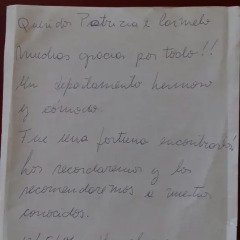 Queridos Patrizia e Carmelo
Muchas gracias por todo!!
Un departamento hermoso
y cómodo.
Fue una fortuna encontrarlos!
Los recordaremos y los
recomendaremos a nuestros
conocidos.